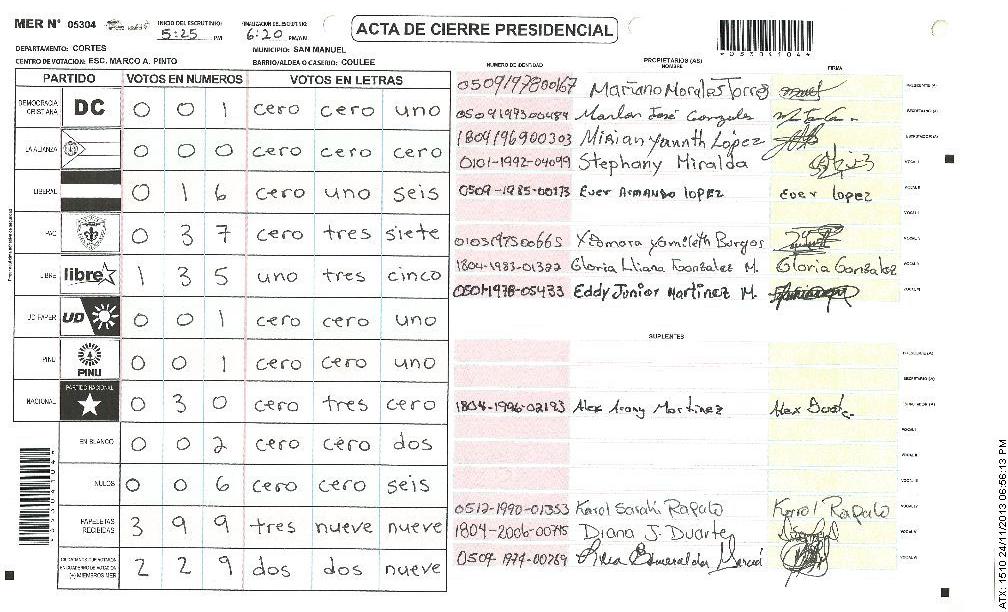 MER N° 05304 INICIO DEL ESCRUTINIO: 5:25 PM FINALIZACION DEL ESCRUTINIO: 6:20 PM/AM ACTA DE CIERRE PRESIDENCIAL
DEPARTAMENTO: CORTES MUNICIPIO: SAN MANUEL
CENTRO DE VOTACION: ESC. MARCO A. PINTO BARRIO/ALDEA O CASERIO: COULEE
PARTIDO VOTOS EN NUMEROS VOTOS EN LETRAS
DEMOCRACIA CRISTIANA DC 0 0 1 cero cero uno
LA ALIANZA 0 0 0 cero cero cero
LIBERAL 0 1 6 cero uno seis
PAC 0 3 7 cero tres siete
LIBRE libre 1 3 5 uno tres cinco
UD FAPER UD 0 0 1 cero cero uno
PINU PINU 0 0 1 cero cero uno
NACIONAL PARTIDO NACIONAL 0 3 0 cero tres cero
EN BLANCO 0 0 2 cero cero dos
NULOS 0 0 6 cero cero seis
PAPELETAS RECIBIDAS 3 9 9 tres nueve nueve
(+) MIEMBROS MER 2 2 9 dos dos nueve
PROPIETARIOS (AS)
NUMERO DE IDENTIDAD NOMBRE FIRMA
0509197800167 Mariano Morales Torres PRESIDENTE (A)
0509197300484 Marlon José Gonzales SECRETARIO (A)
1804196900303 Mirian Yannth López
0101-1992-04099 Stephany Miralda VOCAL I
0509-1985-00173 Ever Armando lopez Ever lopez VOCAL II
0103197500665 Xiomara Yamileth Burgos
1804-1983-01322 Gloria Lliana Gonzalez M. Gloria Gonzalez
0501-1978-05433 Eddy Junior Martinez M.
SUPLENTES
PRESIDENTE (A)
SECRETARIO (A)
1804-1996-02193 Alex Martinez Alex
0512-1990-01353 Karol Sarahi Rapalo Karol Rapalo
1804-2006-00745 Diana J. Duarte
Esmeralda
ATX: 1510 24/11/2013 06:56:13 PM